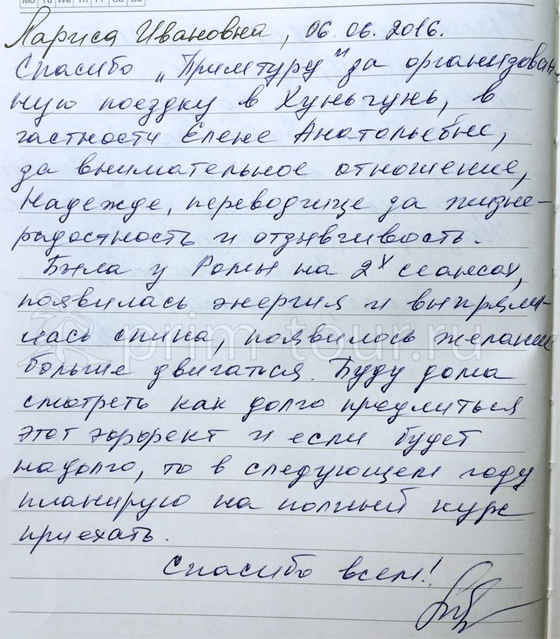 Mo Tu We Th Fr Sa Su
Лариса Ивановна, 06.06.2016.
Спасибо „Примтуру" за организован
ную поездку в Хуньчунь, в
частности Елене Анатольевне,
за внимательное отношение,
Надежде, переводчице за жизне-
радостность и отзывчивость.
Была у Ромы на 2х сеансах,
появилась энергия и выпрями-
лась спина, появилось желание
prim-tour.ru
больше двигаться. Буду дома
смотреть как долго продлиться
этот эффект и если будет
надолго, то в следующем году
планирую на полный курс
приехать.
Спасибо всем!